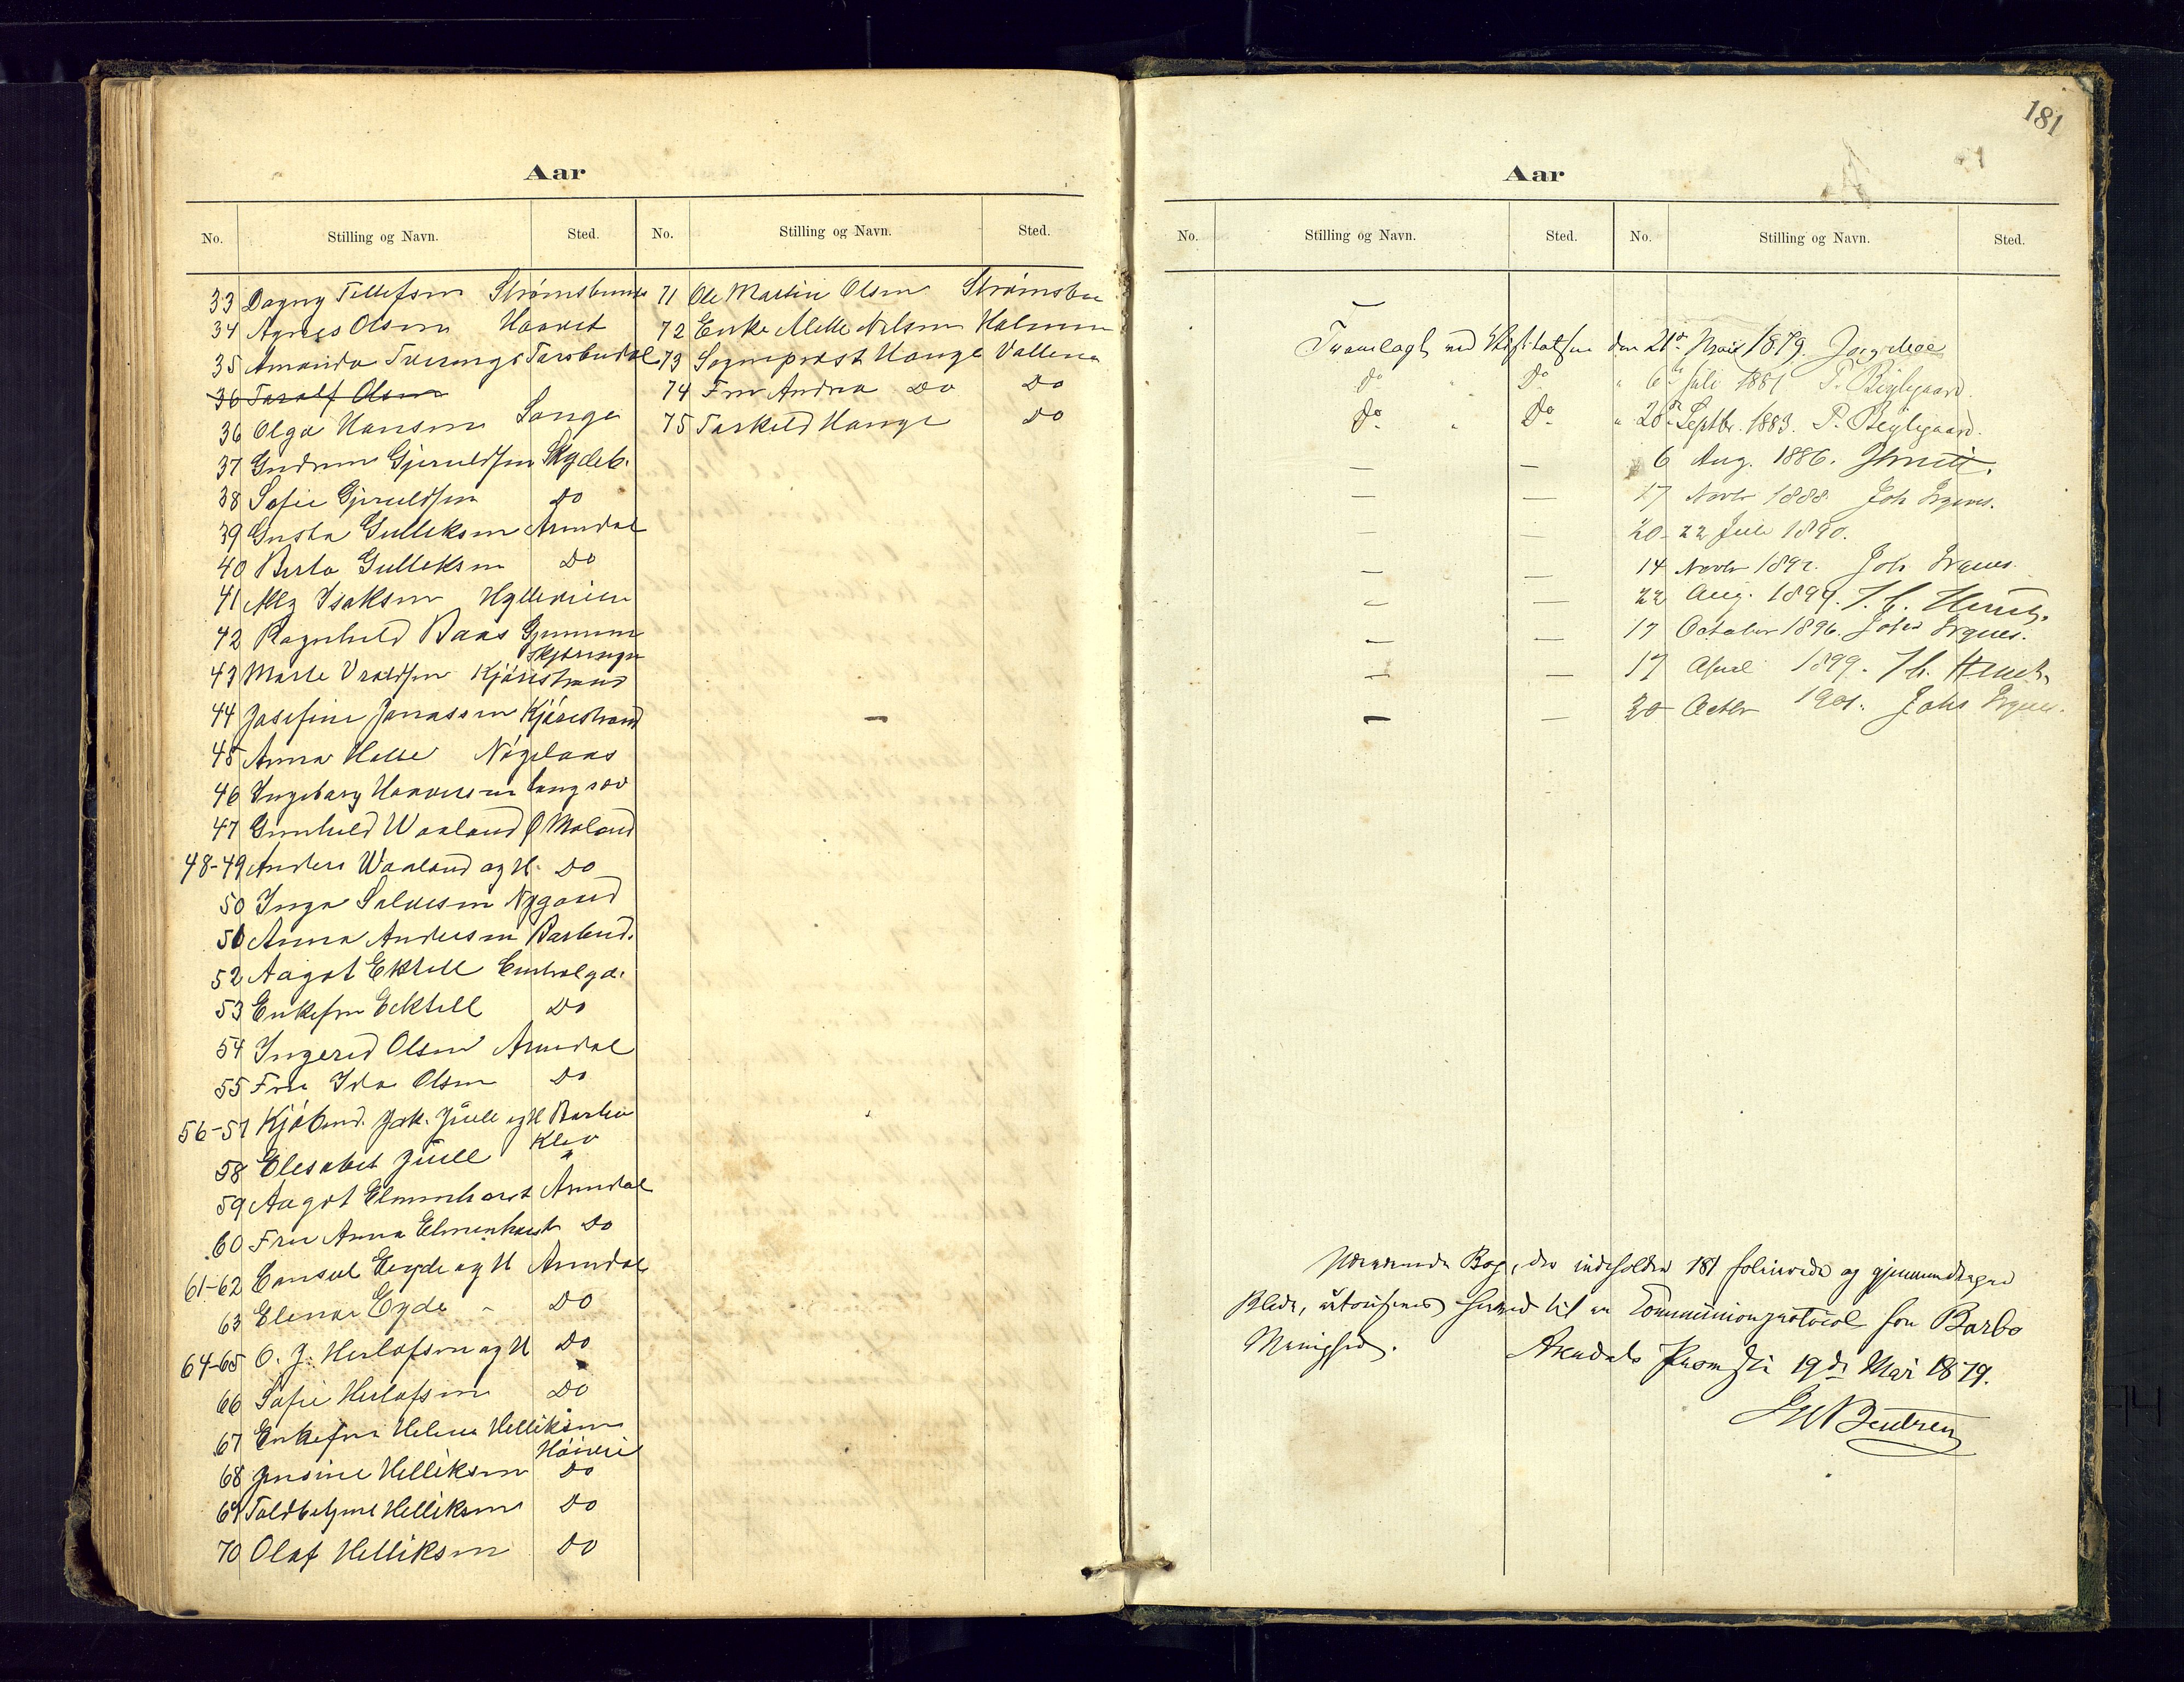 Aar
No. Stilling og Navn. Sted. No. Stilling og Navn. Sted.
33 Dagny Tellefsen Strømsbunes
34 Agnes Olsen Haavet
35 Amanda Taraldsen
36 Taralf Olsen
36 Olga Hansen Songe
37 Gudrun Gjeruldsen Skydeb.
38 Sofie Gjeruldsen Do
39 Gusta Gulleksen Arendal
40 Berta Gulleksen Do
41 Alty Isaksen
42 Ragnhild Baas
43 Marte Vraldsen Kjøristrand
44 Josefine Jonassen Kjøristrand
45 Anna Helle
46 Ingeborg Haavorsen Langsæv
47 Gunhild Waaland Ø Moland
48-49 Anders Waaland og H. Do
50 Inga Salvesen Nygaard
51 Anna Andersen Barbud.
52 Aagot Ektell
53 Enkefru Ecktell Do
54 Ingerid Olsen Arendal
55 Fru Ida Olsen Do
56-57 Kjøbmd. Jak. Juell og H Barbu
Klev
58 Elisabet Juell "
59 Aagot Elmenhorst Arendal
60 Fru Anna Elmenhorst Do
61-62 Consul Eyde og H Arendal
63 Elenor Eyde - Do
64-65 O. J. Herlofsen og H Do
66 Sofie Herlofsen Do
67 Enkefru Helene Helliksen
68 Jensine Helliksen Do
69 Toldbetjent Helliksen Do
70 Olaf Helliksen Do
71 Ole Martin Olsen Strømsbu
72 Enke Mette Nilsen
73 Sogneprest Hauge Vollene
74 Fru Andrea Do Do
75 Torkild Hauge Do
181
Aar
No. Stilling og Navn. Sted. No. Stilling og Navn. Sted.
Fremlagt ved Visitatsen den 21de Mai 1879. Jørg. Moe
Do " Do " 6te Juli 1881 P. Bøylgaard.
Do " Do " 20de Septbr. 1883. P. Bøylgaard.
— — 6 Aug. 1886.
— — 17 Novbr 1888 Joh
— — 20-22 Juli 1890.
— — 14 Novbr 1892. Joh
— — 22 Aug. 1894.
— — 17 October 1896. Johs
— — 17 April 1899.
— — 30 Octbr 1901. Johs
Nærværende Bog, der indeholder 181 folierede og gjennemdragne
Blade, autoriseres herved til en Communionprotocol for Barbo
Menighed. Arendals Provsti 19de Mai 1879.